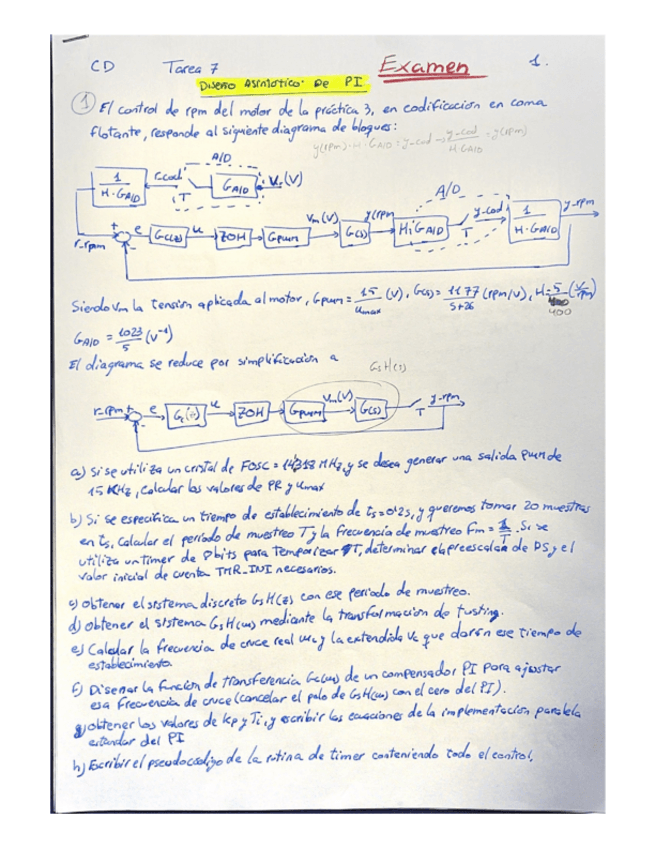 CD Tarea 7 Examen 1.
Diseño Asintótico De PI
① El control de rpm del motor de la práctica 3, en codificación en coma
flotante, responde al siguiente diagrama de bloques:
y(rpm)·H·GA/D = y-cod → y-cod / H·GA/D = y(rpm)
A/D
1 / H·GA/D r-cod T GA/D Vr(V)
A/D
r-rpm + - e Gc(z) u ZOH Gpwm Vm(V) G(s) y(rpm) H·GA/D T y-cod 1 / H·GA/D y-rpm
Siendo Vm la tensión aplicada al motor, Gpwm = 15/umax (V), G(s) = 1177/s+26 (rpm/V), H = 5/400 (V/rpm)
GA/D = 1023/5 (V⁻¹)
El diagrama se reduce por simplificación a
GsH(s)
r-rpm + - e Gc(z) u ZOH Gpwm Vm(V) G(s) T y-rpm
a) Si se utiliza un cristal de FOSC = 14'318 MHz, y se desea generar una salida pwm de
15 KHz, calcular los valores de PR y umax
b) Si se especifica un tiempo de establecimiento de ts=0'2s, y queremos tomar 20 muestras
en ts, calcular el período de muestreo T y la frecuencia de muestreo Fm = 1/T. Si se
utiliza un timer de bits para temporizar T, determinar el preescalar de PS y el
valor inicial de cuenta TMR_INI necesarios.
c) Obtener el sistema discreto GsH(z) con ese periodo de muestreo.
d) Obtener el sistema GsH(w) mediante la transformación de tusting.
e) Calcular la frecuencia de cruce real wc y la extendida vc que darán ese tiempo de
establecimiento
f) Diseñar la función de transferencia Gc(w) de un compensador PI para ajustar
esa frecuencia de cruce (cancelar el polo de GsH(w) con el cero del PI).
g) obtener los valores de kp y Ti, y escribir las ecuaciones de la implementación paralela
estándar del PI
h) Escribir el pseudocódigo de la rutina de timer conteniendo todo el control.